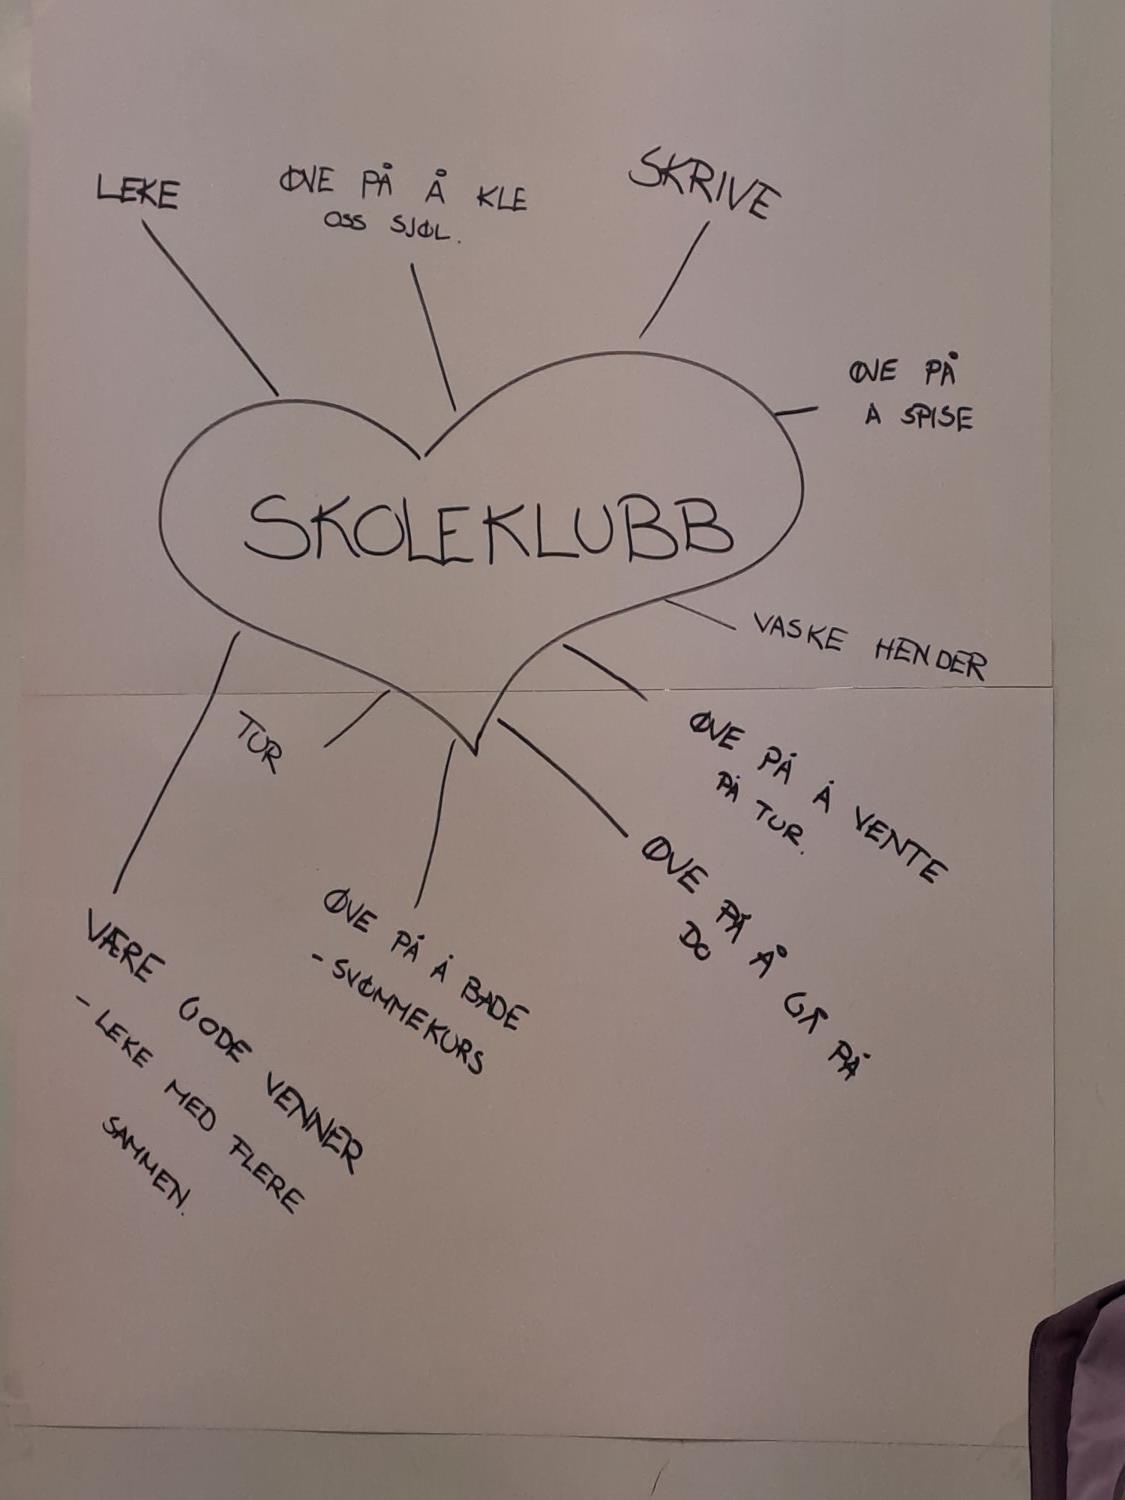 LEKE
ØVE PÅ Å KLE
OSS SJØL.
SKRIVE
ØVE PÅ
Å SPISE
SKOLEKLUBB
VASKE HENDER
ØVE PÅ Å VENTE
PÅ TUR.
ØVE PÅ Å GÅ PÅ
DO
ØVE PÅ Å BADE
- SVØMMEKURS
TUR
VÆRE GODE VENNER
- LEKE MED FLERE
SAMMEN.